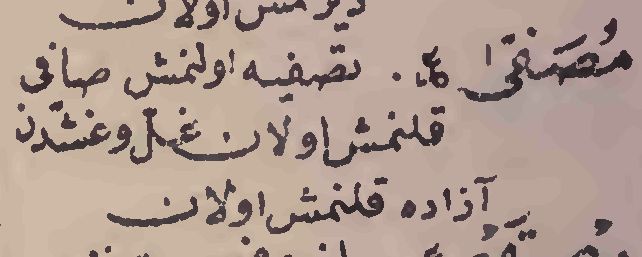 اولان
مُصَفّیٰ ع. تصفیه اولنمش صافی
قلنمش اولان غلّ وغشّدن
آزاده قلنمش اولان